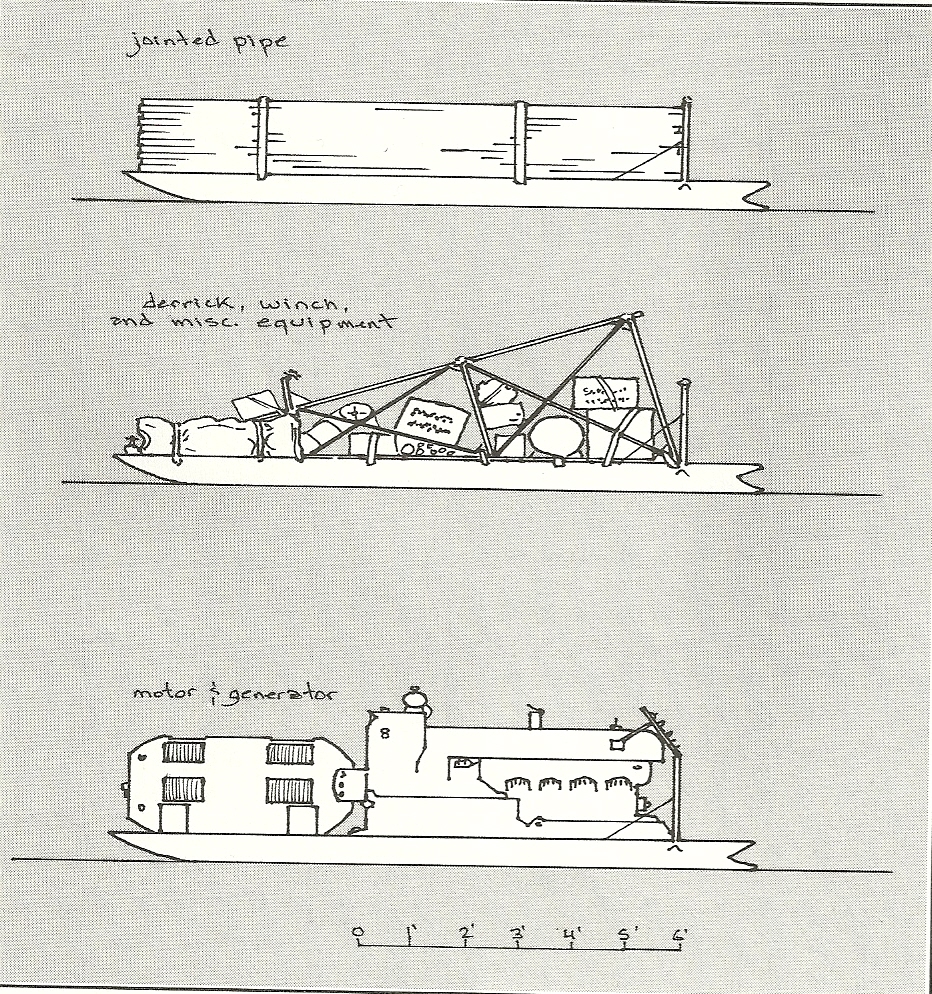 jointed pipe
derrick, winch,
and misc. equipment
motor & generator
8
0 1' 2' 3' 4' 5' 6'